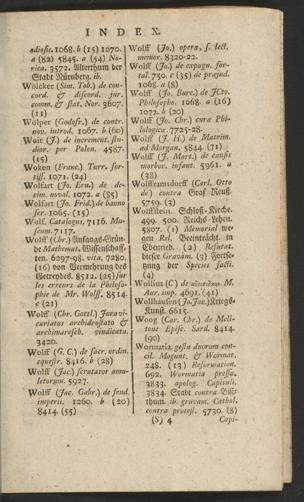 INDEX.
adionſ. 1068. b (15) 1070.
a (82) 5845. a (54) No-
rica. 3572. Alterthum der
Stadt Nürnberg. ib.
Wölcker (Sim. Tob.) de con-
cord. & diſcord. jur.
comm. & ſtat. Nor. 3607.
(11)
Wölper (Godofr.) de contr.
nov. introd. 1067. b (60)
Woit (J.) de increment. ſtu-
dior. per Polon. 4587.
(15)
Woken (Franc.) Turr. for-
tiſſ. 1071. (24)
Wolfart (Jo. Erm.) de de-
cim. noval. 1072. a (85)
Wolfart (Jo. Frid.) de banno
fer. 1065. (15)
Wolf, Catalogus, 7116. Mu-
ſeum. 7117.
Wolff (Chr.) Anfangs-Grün-
de Mathemat. Wiſſenſchaff-
ten. 6297-98. vita, 7280.
(16) von Vermehrung des
Getreydes. 8512. (25) ſur
les erreurs de la Philoſo-
phie de Mr. Wolff. 8514.
c (21)
Wolff (Chr. Gottl.) Jura vi-
cariatus archidapiferatus &
archimareſch. vindicata.
3420.
Wolff (G. C.) de ſacr. ordin.
equeſtr. 8416. b (28)
Wolff (Jac.) ſcrutator amu-
letorum. 5927.
Wolff (Jac. Gabr.) de feud.
imperii. 1260. b (20)
8414 (55)
Wolff (Jo.) opera, ſ. lect.
memor. 8320-22.
Wolff (Jo.) de expugn. for-
tal. 750. c (35) de præjud.
1068. a (8)
Wolff (Jo. Burc.) de JCto.
Philoſopho. 1068. a (16)
1072. b (20)
Wolff (Jo. Chr.) cura Phi-
lologica. 7725-28.
Wolff (J. H.) de Matrim.
ad Morgan. 5844. (71)
Wolff (J. Mart.) de cauſis
morbor. infant. 5961. a
(38)
Wolfframsdorff (Carl. Otto
de) contra Graf Reuß.
5759. (3)
Wolffſtein. Schloß-Kirche.
499. 500. Reichs-Lehen.
5807. (1) Memorial we-
gen Rel. Beeinträcht. in
Ebenried. (2) Refutat.
dieſer Gravám. (3) Fortſe-
tzung der Species facti.
(4)
Wolius (C) de M.
Aur. imp. 4691. (41)
Wollhauſen (Jo. Jac.) Kriegs-
Kunſt. 6615.
Woog (Car. Chr.) de Meli-
tone Epiſc. Sard. 8414.
(90)
Wormatia. geſta duorum con-
cil. Mogunt. & Wormat.
248. (13) Reformation.
692. Wormatia preſſa.
3833. apolog. Capituli.
3834. Stadt contra Biß-
thum. ib. gravam. Cathol.
contra proteſt. 5730. (8)
(S) 4
Capi-